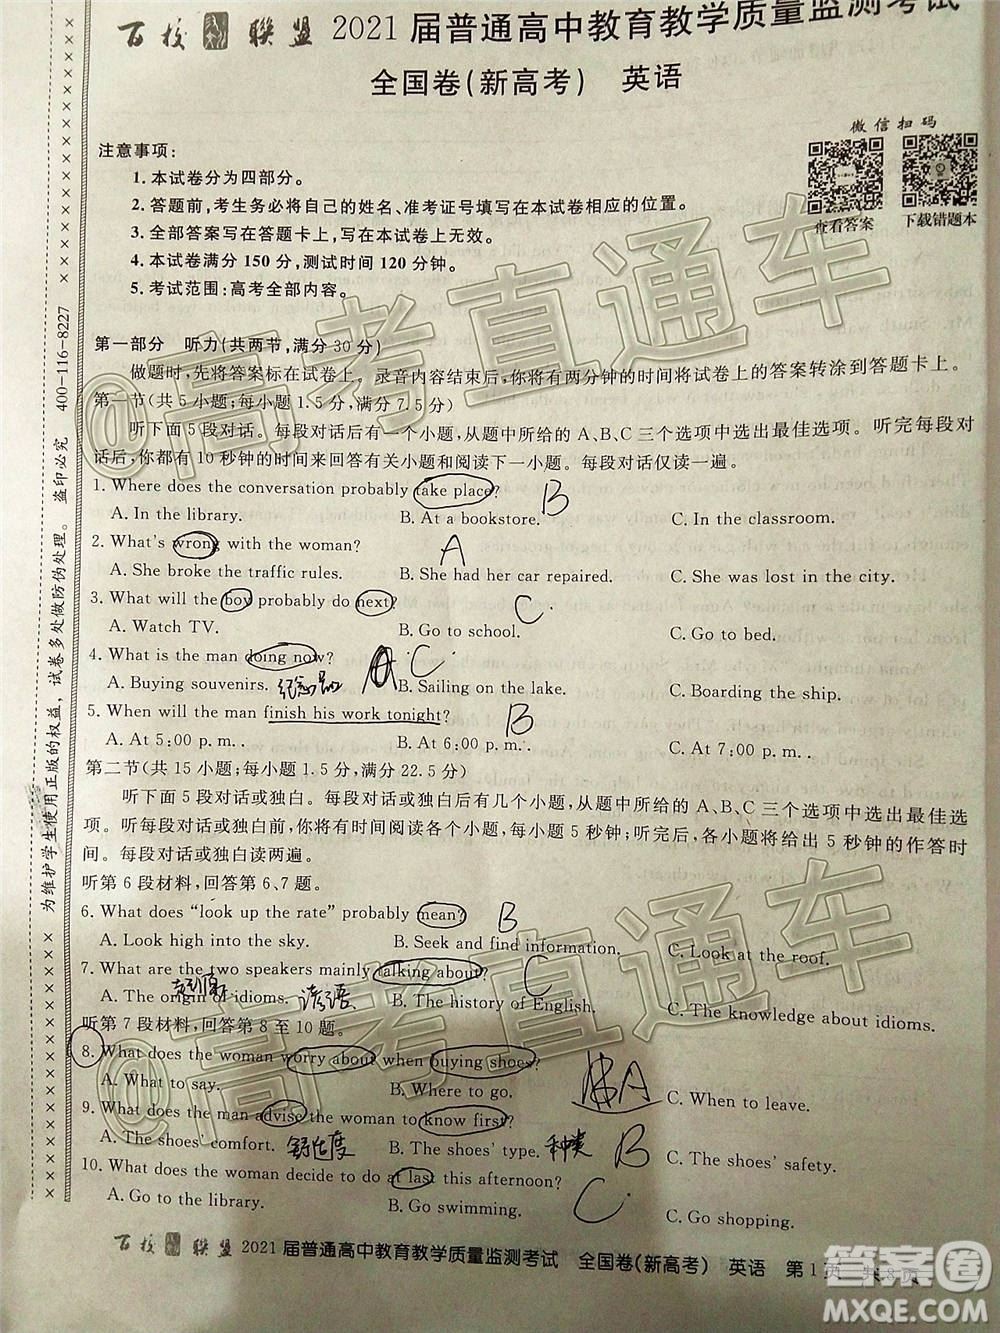 百校联盟 2021届普通高中教育教学质量监测考试
全国卷(新高考) 英语
微信扫码
查看答案 下载错题本
注意事项:
1.本试卷分为四部分。
2.答题前,考生务必将自己的姓名、准考证号填写在本试卷相应的位置。
3.全部答案写在答题卡上,写在本试卷上无效。
4.本试卷满分150分,测试时间120分钟。
5.考试范围:高考全部内容。
第一部分 听力(共两节,满分30分)
做题时,先将答案标在试卷上。录音内容结束后,你将有两分钟的时间将试卷上的答案转涂到答题卡上。
第一节(共5小题;每小题1.5分,满分7.5分)
听下面5段对话。每段对话后有一个小题,从题中所给的A、B、C三个选项中选出最佳选项。听完每段对
话后,你都有10秒钟的时间来回答有关小题和阅读下一小题。每段对话仅读一遍。
1. Where does the conversation probably take place? B
A. In the library. B. At a bookstore. C. In the classroom.
2. What's wrong with the woman? A
A. She broke the traffic rules. B. She had her car repaired. C. She was lost in the city.
3. What will the boy probably do next? C
A. Watch TV. B. Go to school. C. Go to bed.
4. What is the man doing now? A C
A. Buying souvenirs. 纪念品 B. Sailing on the lake. C. Boarding the ship.
5. When will the man finish his work tonight? B
A. At 5:00 p. m. . B. At 6:00 p. m. . C. At 7:00 p. m. .
第二节(共15小题;每小题1.5分,满分22.5分)
听下面5段对话或独白。每段对话或独白后有几个小题,从题中所给的A、B、C三个选项中选出最佳选
项。听每段对话或独白前,你将有时间阅读各个小题,每小题5秒钟;听完后,各小题将给出5秒钟的作答时
间。每段对话或独白读两遍。
听第6段材料,回答第6、7题。
6. What does “look up the rate” probably mean? B
A. Look high into the sky. B. Seek and find information. C. Look at the roof.
7. What are the two speakers mainly talking about? C
A. The origin of idioms. 谚语 B. The history of English. C. The knowledge about idioms.
听第7段材料,回答第8至10题。
8. What does the woman worry about when buying shoes? A
A. What to say. B. Where to go. C. When to leave.
9. What does the man advise the woman to know first?
A. The shoes' comfort. 舒适度 B. The shoes' type. 种类 B C. The shoes' safety.
10. What does the woman decide to do at last this afternoon?
A. Go to the library. B. Go swimming. C
百校联盟 2021届普通高中教育教学质量监测考试 全国卷(新高考) 英语 第1页 共8页
为维护学生使用正版的权益,试卷多处做防伪处理。盗印必究 400-116-8227
@高考直通车
@高考直通车
答案圈
MXQE.COM